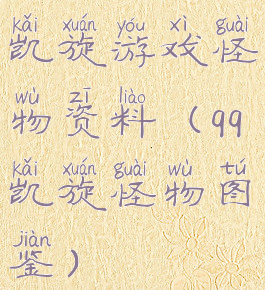 kǎi xuán yóu xì guài
凯旋游戏怪
wù zī liào
物资料（qq
kǎi xuán guài wù tú
凯旋怪物图
jiàn
鉴）